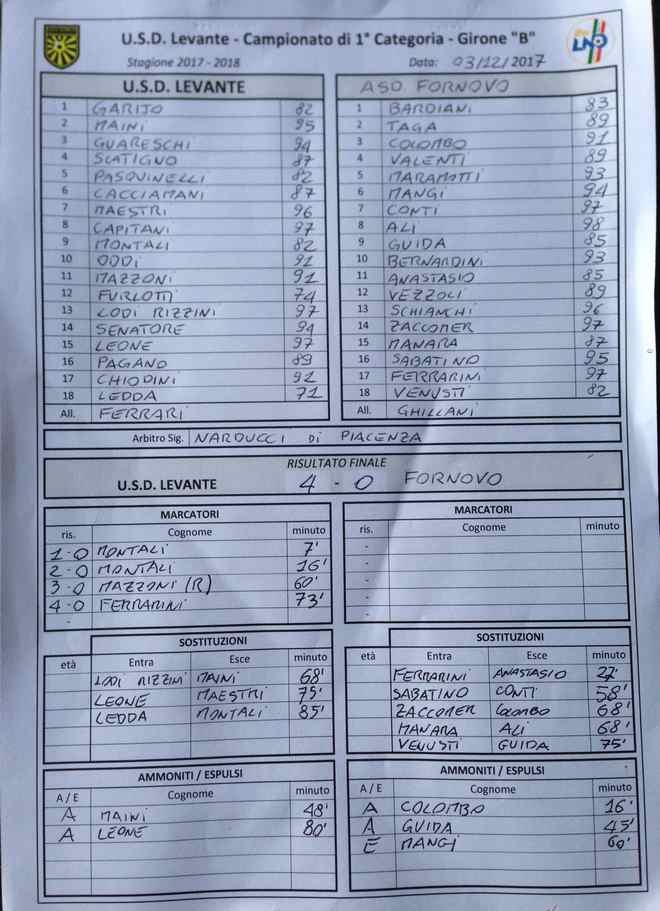 U.S.D. Levante - Campionato di 1° Categoria - Girone "B"
Stagione 2017 - 2018 Data: 03/12/2017
LND
U.S.D. LEVANTE
1 GARIJO 82
2 MAINI 95
3 GUARESCHI 94
4 SCATIGNO 87
5 PASQUINELLI 82
6 CACCIAMANI 87
7 MAESTRI 96
8 CAPITANI 97
9 MONTALI 82
10 ODDI 91
11 MAZZONI 91
12 FURLOTTI 74
13 LODI RIZZINI 97
14 SENATORE 94
15 LEONE 97
16 PAGANO 89
17 CHIODINI 92
18 LEDDA 71
All. FERRARI
ASD FORNOVO
1 BARDIANI 83
2 TAGA 89
3 COLOMBO 91
4 VALENTI 89
5 MARAMOTTI 93
6 MANGI 94
7 CONTI 97
8 ALI 98
9 GUIDA 85
10 BERNARDINI 93
11 ANASTASIO 85
12 VEZZOLI 89
13 SCHIANCHI 96
14 ZACCOMER 97
15 MANARA 87
16 SABATINO 95
17 FERRARINI 97
18 VENUSTI 82
All. GHILLANI
Arbitro Sig. NARDUCCI DI PIACENZA
RISULTATO FINALE
U.S.D. LEVANTE 4 - 0 FORNOVO
MARCATORI
ris. Cognome minuto
1-0 MONTALI 7'
2-0 MONTALI 16'
3-0 MAZZONI (R) 60'
4-0 FERRARINI 73'
-
MARCATORI
ris. Cognome minuto
-
-
-
-
-
SOSTITUZIONI
età Entra Esce minuto
LODI RIZZINI MAINI 68'
LEONE MAESTRI 75'
LEDDA MONTALI 85'
SOSTITUZIONI
età Entra Esce minuto
FERRARINI ANASTASIO 27'
SABATINO CONTI 58'
ZACCOMER COLOMBO 68'
MANARA ALI 68'
VENUSTI GUIDA 75'
AMMONITI / ESPULSI
A / E Cognome minuto
A MAINI 48'
A LEONE 80'
AMMONITI / ESPULSI
A / E Cognome minuto
A COLOMBO 16'
A GUIDA 45'
E MANGI 60'